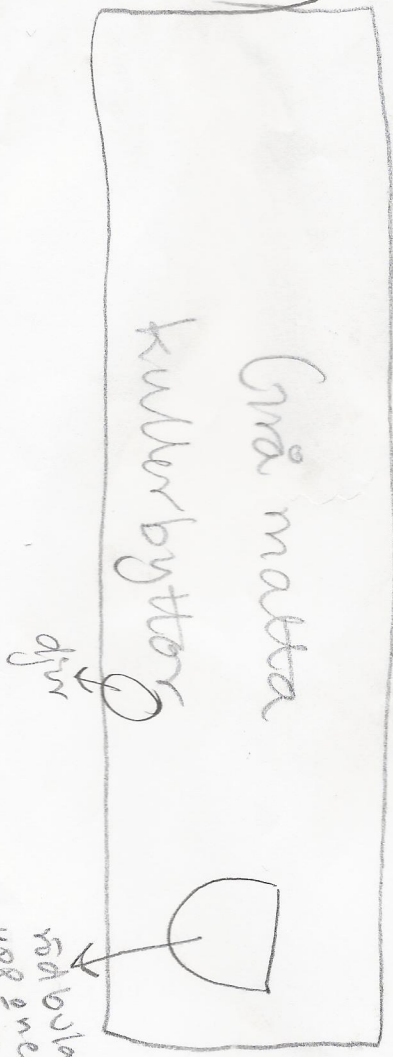 Grå matta
kullerbyttor
djur
röd